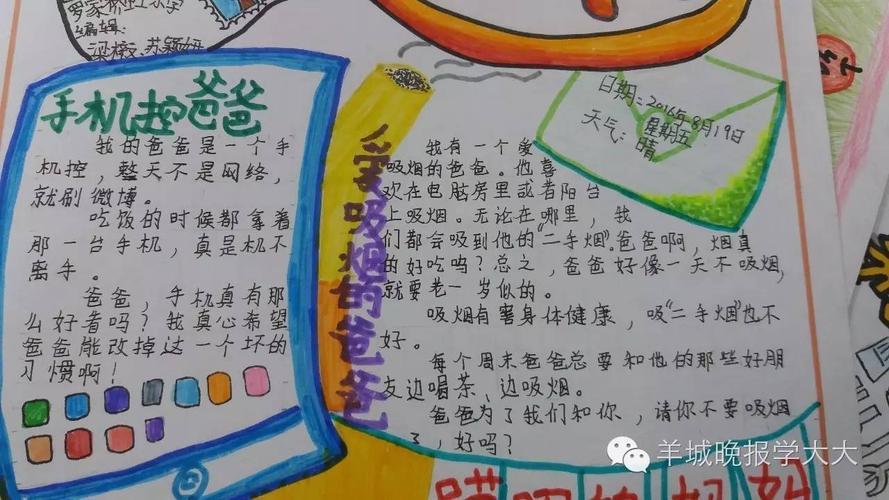 罗家桥虹小学
编辑:
梁榕、苏颖妍
手机控爸爸
我的爸爸是一个手
机控，整天不是网络，
就刷微博。
吃饭的时候都拿着
那一台手机，真是机不
离手。
爸爸，手机真有那
么好看吗？我真心希望
爸爸能改掉这一个坏的
习惯啊！
爱吸烟的爸爸
日期：2016年8月19日
星期五
天气：晴
我有一个爱
吸烟的爸爸。他喜
欢在电脑房里或者阳台
上吸烟。无论在哪里，我
们都会吸到他的“二手烟”。爸爸啊，烟真
的好吃吗？总之，爸爸好像一天不吸烟，
就要老一岁似的。
吸烟有害身体健康，吸“二手烟”也不
好。
每个周末爸爸总要和他的那些好朋
友边喝茶、边吸烟。
爸爸为了我们和你，请你不要吸烟
了，好吗？
羊城晚报学大大